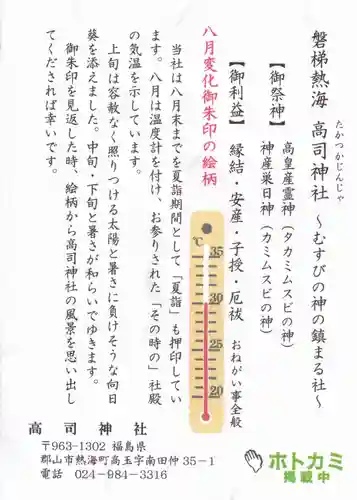 磐梯熱海　高司神社　～むすびの神の鎮まる社～
たかつかじんじゃ
【御祭神】　高皇産霊神（タカミムスビの神）
神産巣日神（カミムスビの神）
【御利益】　縁結・安産・子授・厄祓　おねがい事全般
八月変化御朱印の絵柄
当社は八月末までを夏詣期間として「夏詣」も押印してい
ます。八月は温度計を付け、お参りされた「その時の」社殿
の気温を示しています。
上旬は容赦なく照りつける太陽と暑さに負けそうな向日
葵を添えました。中旬・下旬と暑さが和らいでゆきます。
御朱印を見返した時、絵柄から高司神社の風景を思い出し
てくだされば幸いです。
℃
35
30
25
20
高司神社
〒963-1302 福島県
郡山市熱海町高玉字南田仲35-1
電話　024-984-3316
ホトカミ
掲載中